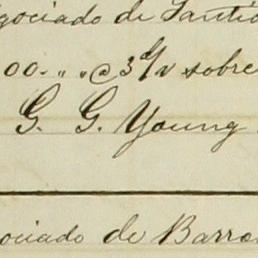 gociado de Santia
00. „ „ @ 3 d/v sobre
G. G. Young
ociado de Barro